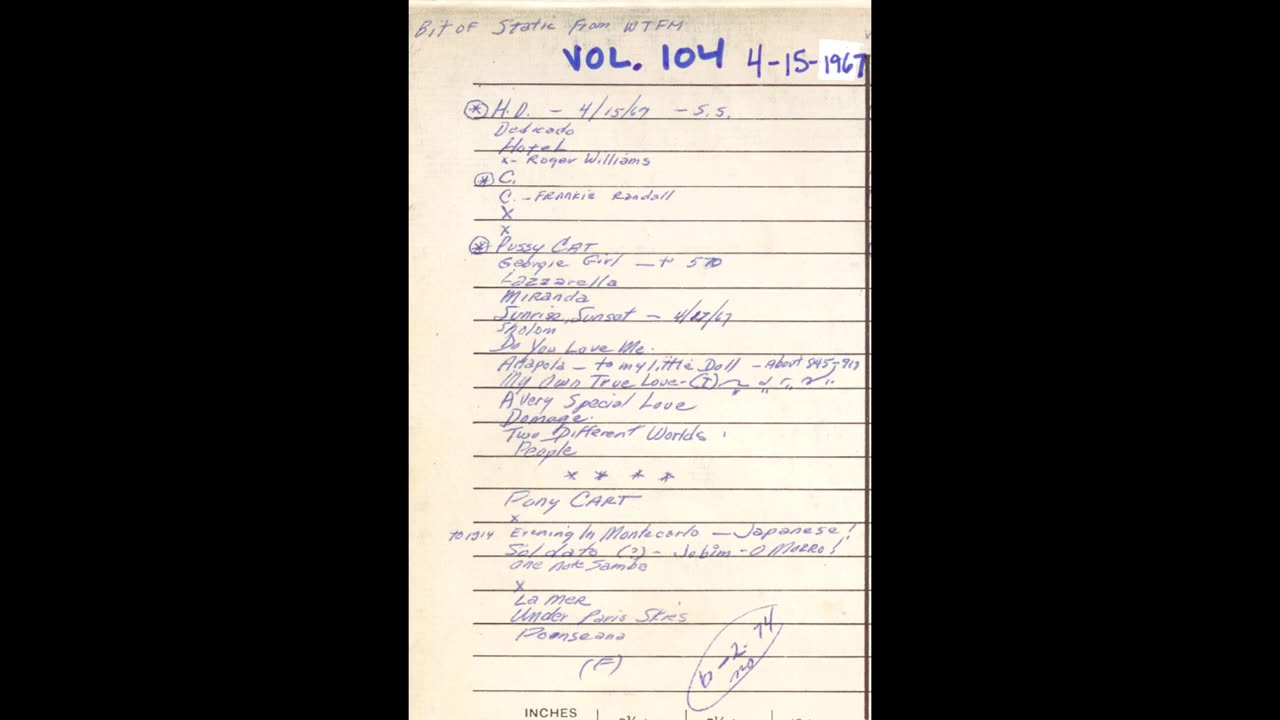 Bit of Static From WTFM
VOL. 104 4-15-1967
* H.D. - 4/15/67 - S.S.
Dedicado
Hotel
x- Roger Williams
* C.
C. - Frankie Randall
X
X
* Pussy CAT
Georgie Girl - + 570
Lazzarella
Miranda
Sunrise, Sunset - 4/27/67
Sholom
Do You Love Me.
Amapola - to my little Doll - About 845-910
My Own True Love - (T)
A Very Special Love
Domage.
Two Different Worlds
People
* * * *
Pony CART
x
TO 1914 Evening In Montecarlo - Japanese!
Soldato (?) - Jobim - O MORRO!
One Note Samba
X
La Mer
Under Paris Skies
Poinseana
(F)
6-2-74
no
INCHES